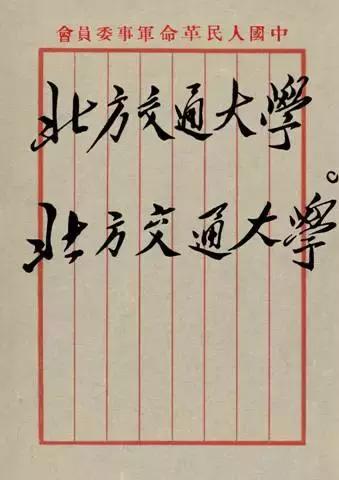 中國人民革命軍事委員會
北方交通大學。
北方交通大學